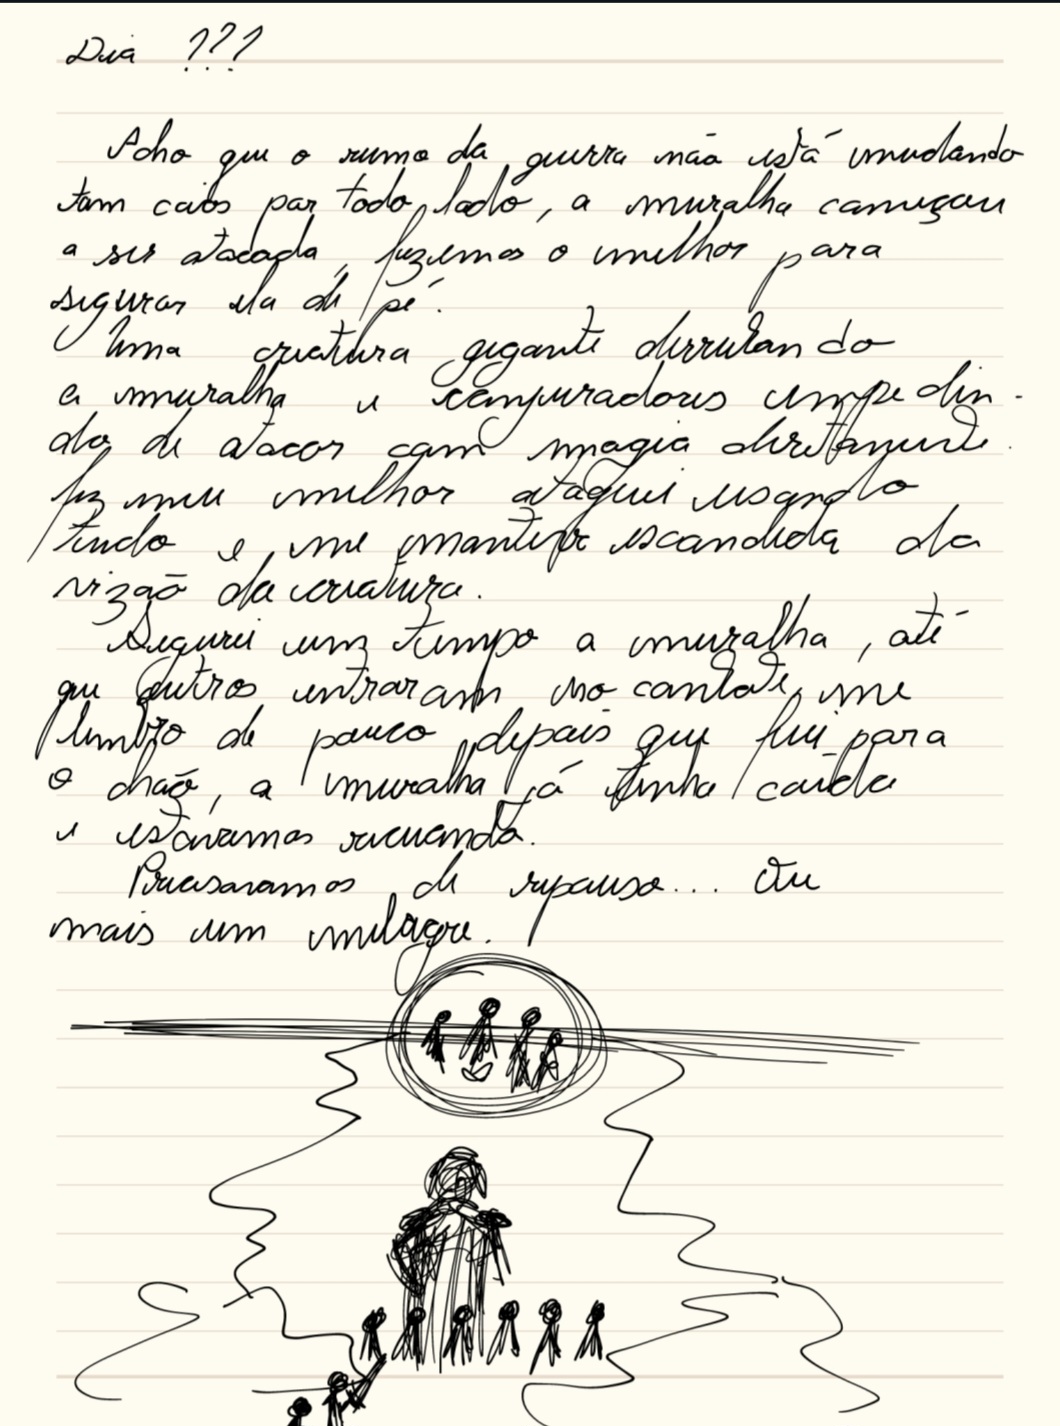 Dia ???
Acho que o rumo da guerra não está mudando
tem caos por todo lado, a muralha começou
a ser atacada, fizemos o melhor para
segurar ela de pé.
Uma criatura gigante derrubando
a muralha e conjuradores impedin-
do de atacar com magia diretamente.
fiz meu melhor ataquei usando
tudo e me mantive escondida da
vizão da criatura.
Segurei um tempo a muralha, até
que outros entraram no combate, me
lembro de pouco depois que fui para
o chão, a muralha já tinha caído
e estávamos recuando.
Precisaramos de repouso... Ou
mais um milagre.